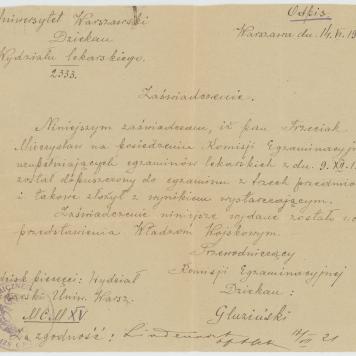 Odpis
Uniwersytet Warszawski
Warszawa dn. 14. VI. 19
Dziekan
Wydziału lekarskiego.
2333.
Zaświadczenie.
Niniejszym zaświadczam, iż pan Trzeciak
Mieczysław na posiedzeniu Komisji Egzaminacyjnej
uzupełniających egzaminów lekarskich z dn. 9. XII. 1
został dopuszczony do egzaminu z trzech przedmio
i takowe złożył z wynikiem wystarczającym.
Zaświadczenie niniejsze wydane zostało
przedstawienia Władzom Wojskowym.
Przewodniczący
Komisji Egzaminacyjnej
Dziekan:
Gluziński
odcisk pieczęci: Wydział
Lekarski Uniw. Warsz.
M.C.M XV
za zgodność:
VII 21